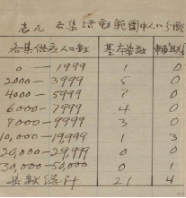 表九 各集活動範圍中人口分配
各集供应人口數 基本集數
0 — 1999 1 0
2000 — 3999 5 0
4000 — 5999 7 0
6000 — 7999 4 0
8000 — 9999 3 0
10,000 — 19,999 1 3
20,000 — 29,999 0 0
30,000 — 50,000 0 1
集數總計 21 4